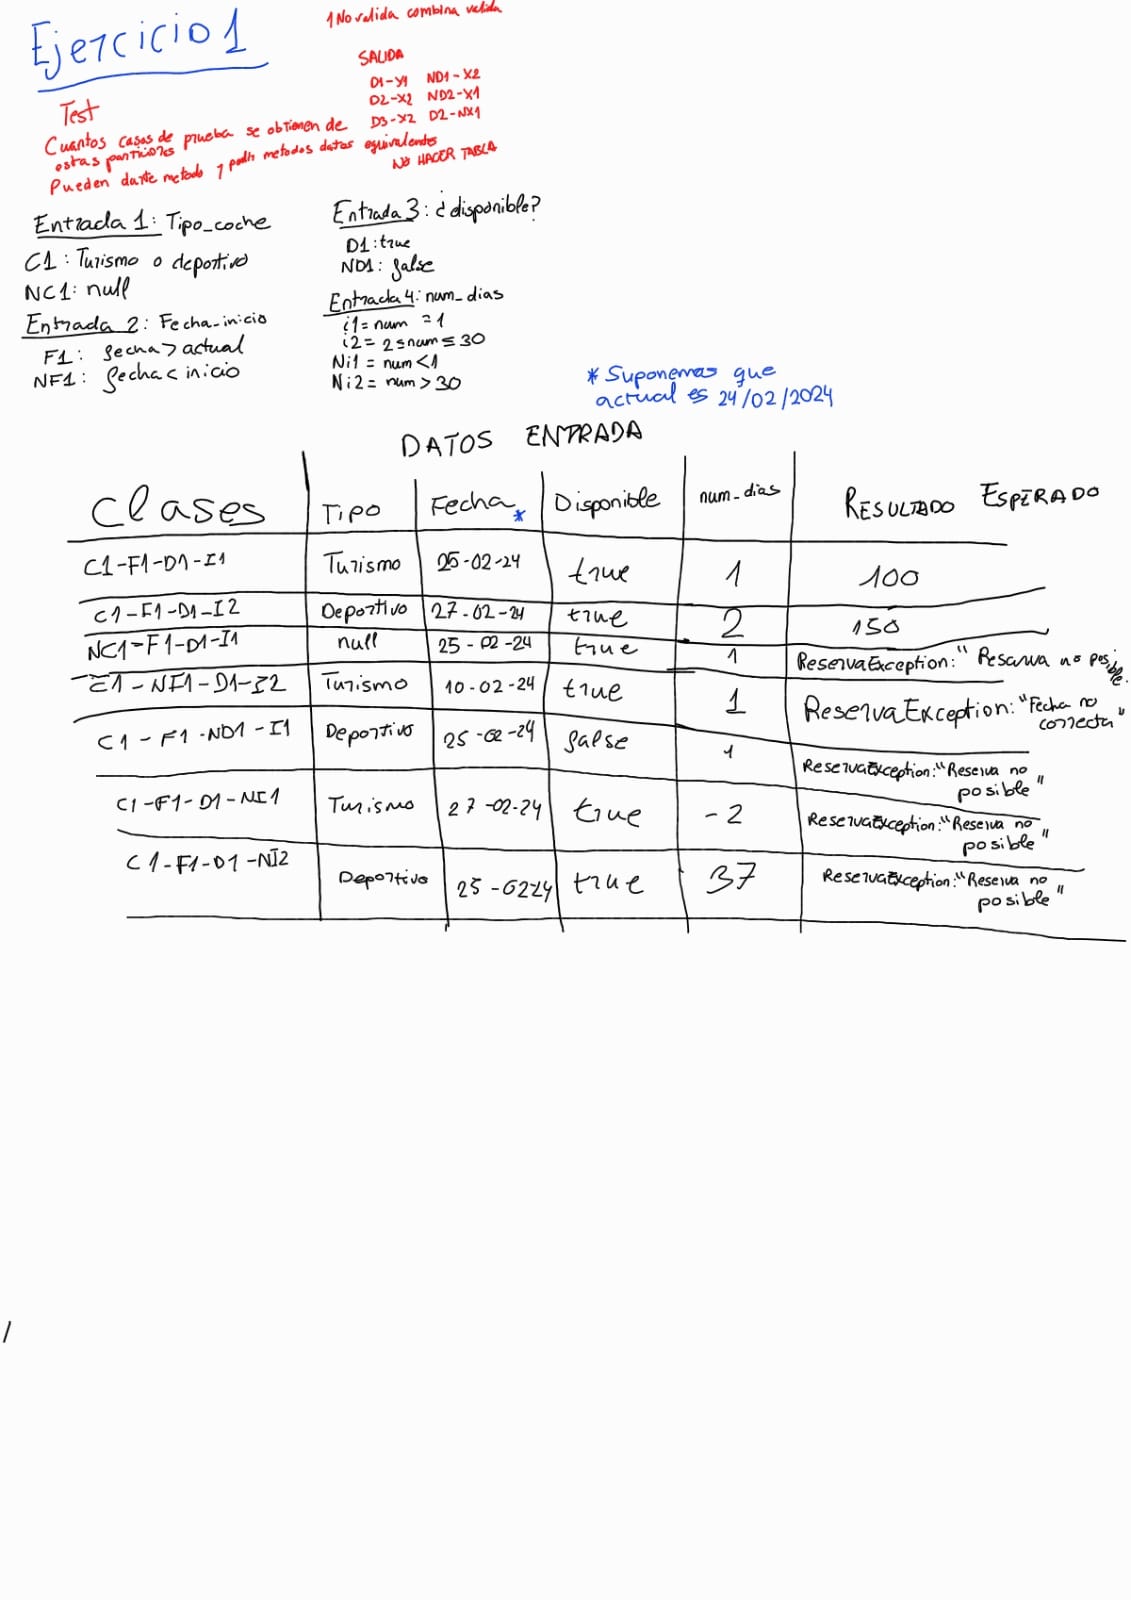 Ejercicio 1
1 No valida combina valida
SALIDA
D1-Y1 ND1-X2
D2-X2 ND2-X1
D3-X2 D2-NX1
NO HACER TABLA
Test
Cuantos casos de prueba se obtienen de
estas particiones
Pueden darte metodo y pedir metodos datos equivalentes
Entrada 1: Tipo_coche
C1: Turismo o deportivo
NC1: null
Entrada 2: Fecha_inicio
F1: fecha > actual
NF1: fecha < inicio
Entrada 3: ¿disponible?
D1: true
ND1: false
Entrada 4: num_dias
i1 = num = 1
i2 = 2 ≤ num ≤ 30
Ni1 = num < 1
Ni2 = num > 30
* Suponemos que
actual es 24/02/2024
DATOS ENTRADA
Clases Tipo Fecha * Disponible num_dias RESULTADO ESPERADO
C1-F1-D1-I1 Turismo 25-02-24 true 1 100
C1-F1-D1-I2 Deportivo 27-02-24 true 2 150
NC1-F1-D1-I1 null 25-02-24 true 1 ReservaException: "Reserva no posible.
C1-NF1-D1-I2 Turismo 10-02-24 true 1 ReservaException: "Fecha no
correcta"
C1-F1-ND1-I1 Deportivo 25-02-24 false 1 ReservaException: "Reserva no
posible"
C1-F1-D1-NI1 Turismo 27-02-24 true -2 ReservaException: "Reserva no
posible"
C1-F1-D1-NI2 Deportivo 25-0224 true 37 ReservaException: "Reserva no
posible"
/